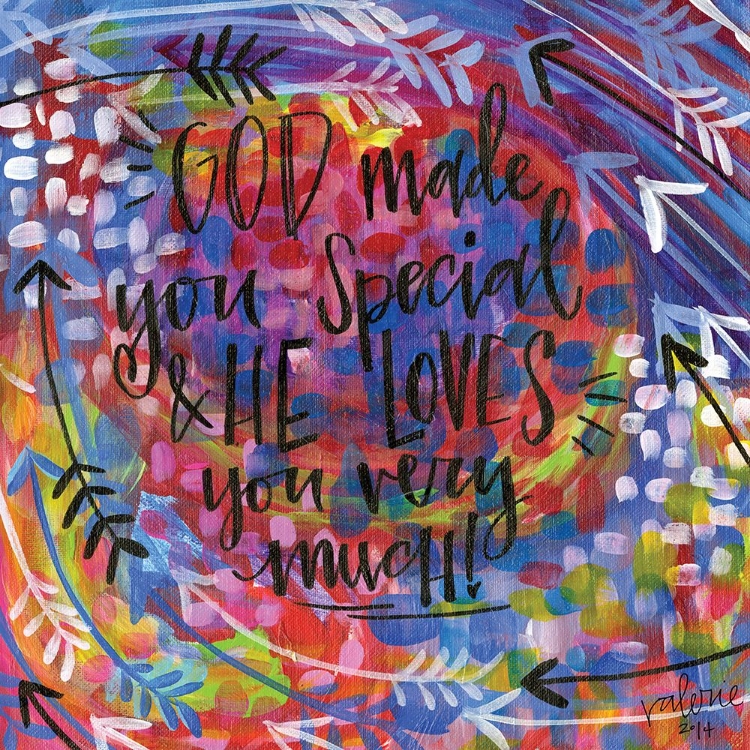 GOD made
you special
& HE LOVES
you very
much!
valerie
2014